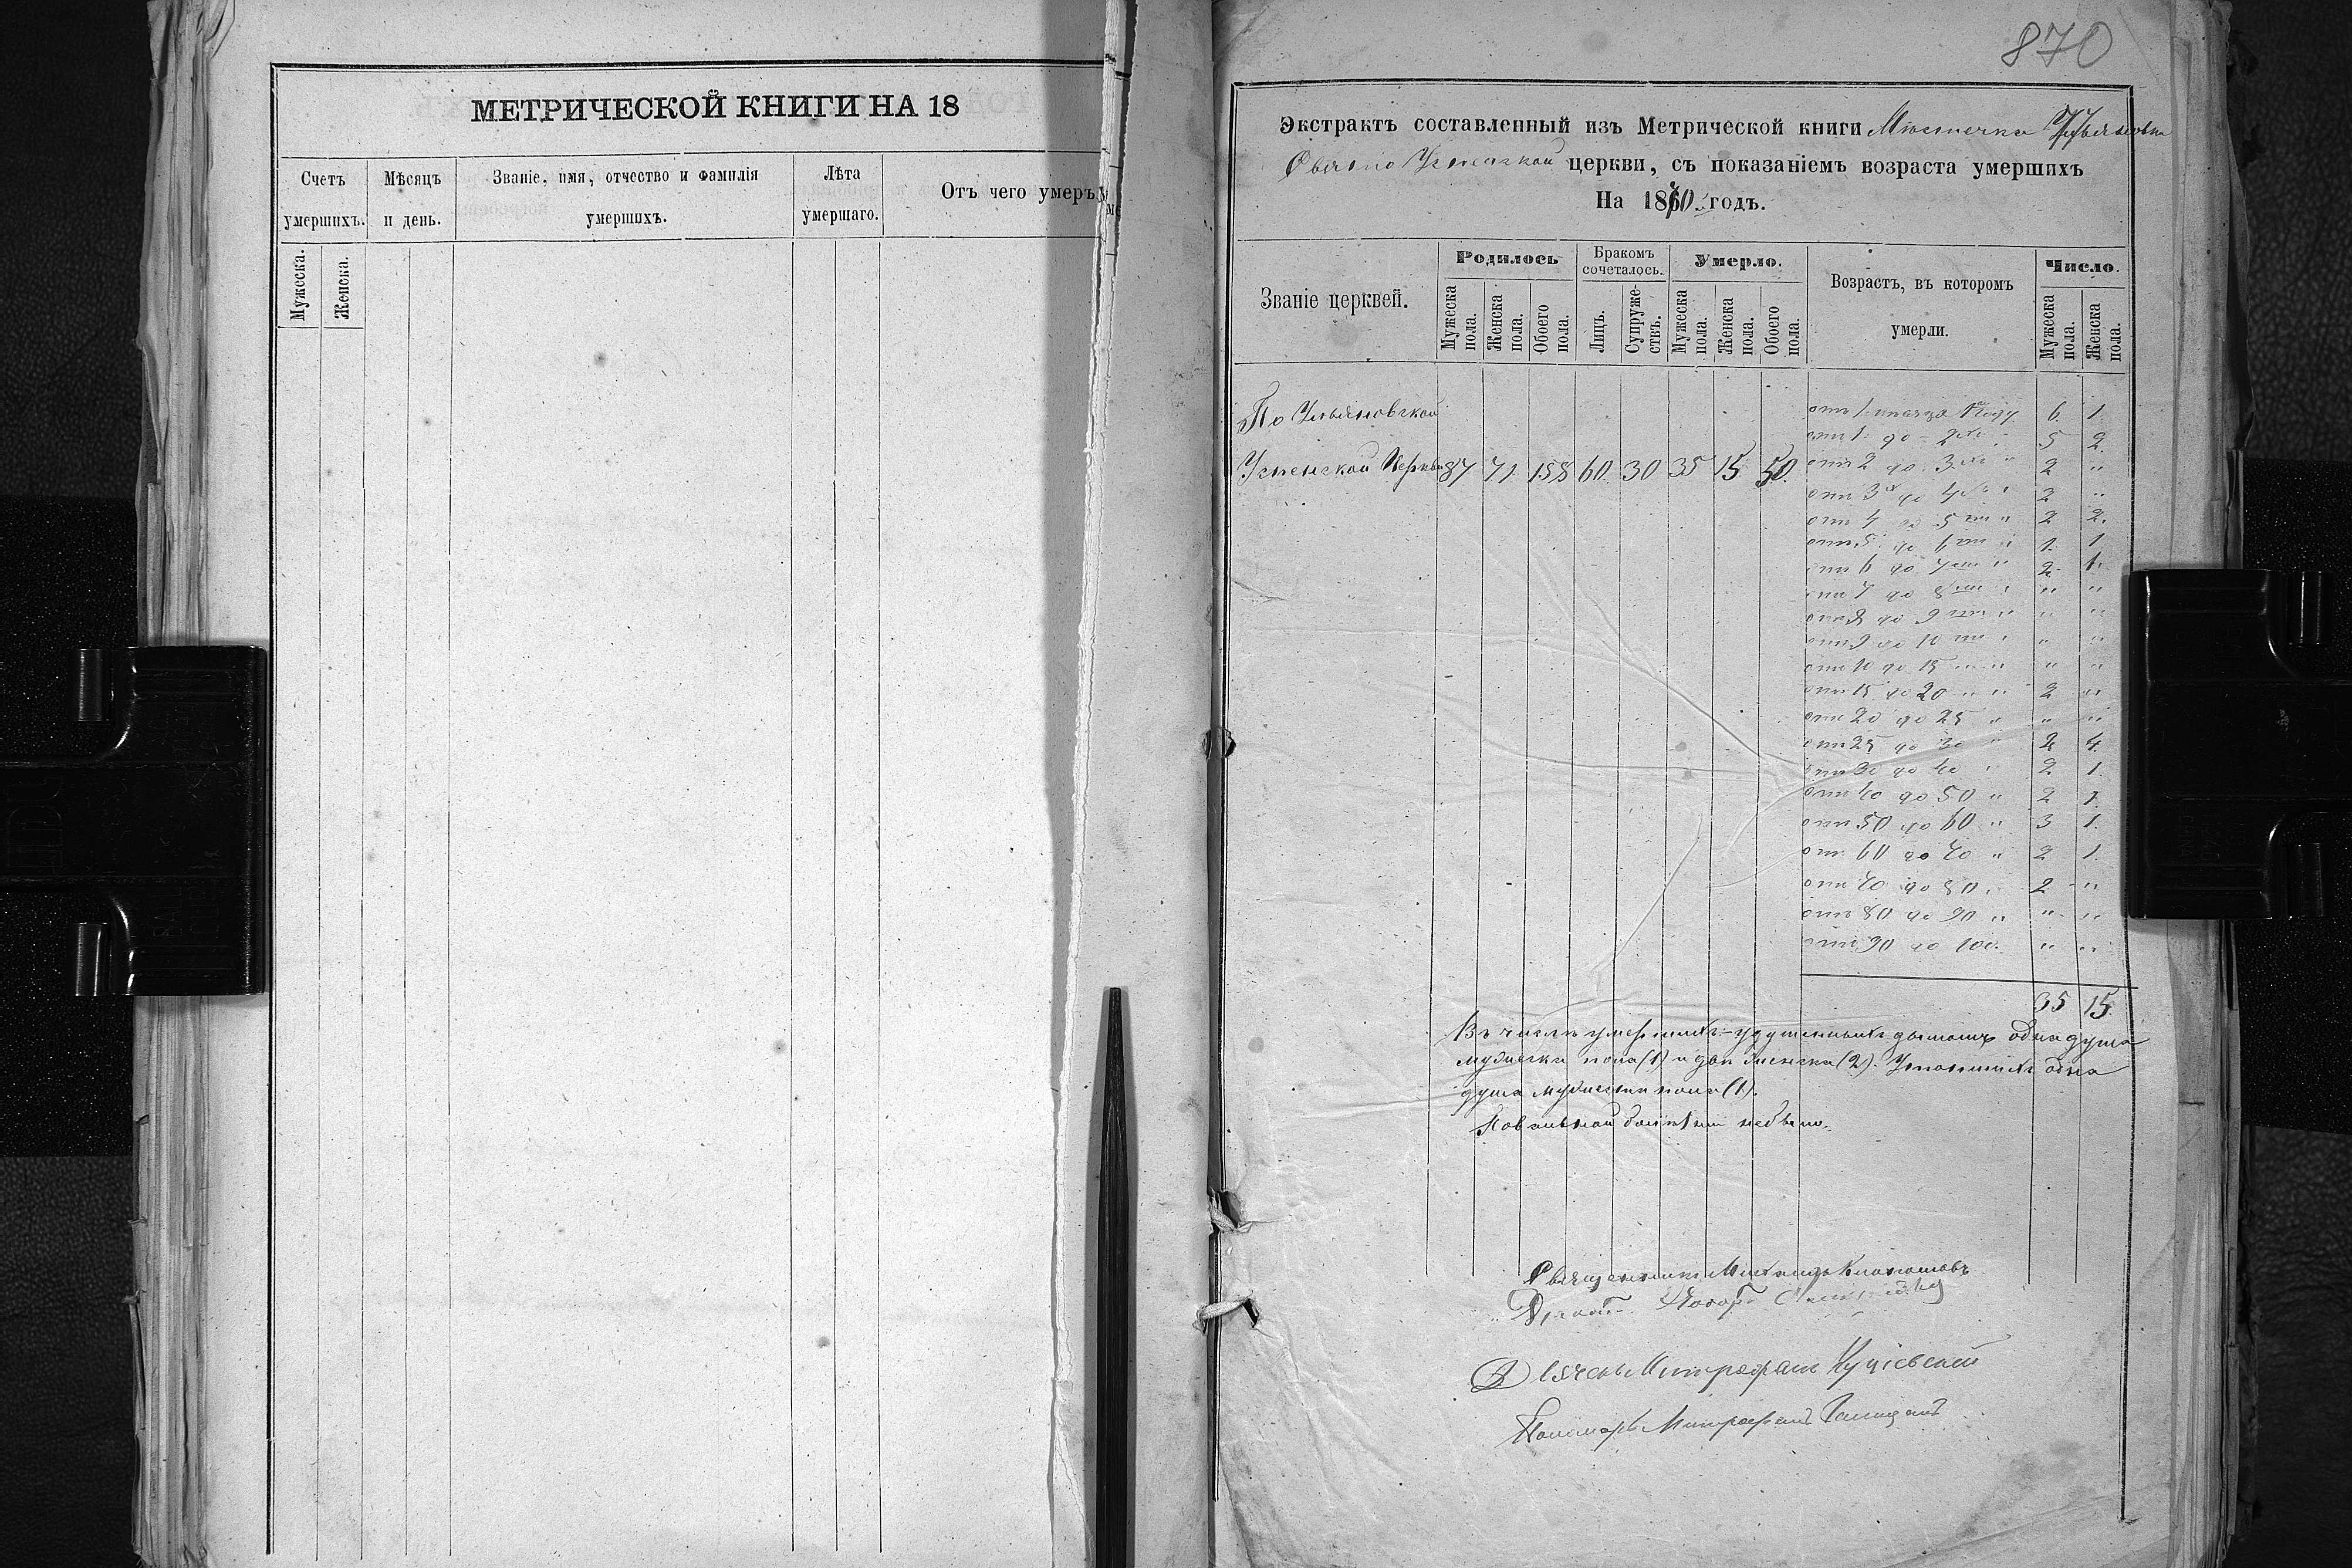 МЕТРИЧЕСКОЙ КНИГИ НА 18
Счетъ умершихъ.
Мужеска.
Женска.
Мѣсяцъ и день.
Званіе, имя, отчество и фамилія умершихъ.
Лѣта умершаго.
Отъ чего умеръ
870
Экстрактъ составленный изъ Метрической книги Мѣстечка Ульяновки
Свято Успенской церкви, съ показаніемъ возраста умершихъ
На 1870 годъ.
Званіе церквей.
Родилось
Мужеска пола.
Женска пола.
Обоего пола.
Бракомъ сочеталось.
Лицъ.
Супружествъ.
Умерло.
Мужеска пола.
Женска пола.
Обоего пола.
Возрастъ, въ которомъ умерли.
Число.
Мужеска пола.
Женска пола.
По Ульяновской
Успенской Церкви 87 71 158 60. 30 35 15 50.
году 6. 1.
отъ 1 до 2хъ 5 2.
отъ 2 до 3хъ " 2 "
отъ 3х до 4хъ " 2 "
отъ 4 до 5ти " 2 2.
отъ 5 до 6ти " 1. 1
отъ 6 до 7ми " 2 1.
отъ 7 до 8ми " " "
отъ 8 до 9ти " " "
отъ 9 до 10ти " " "
отъ 10 до 15 " " " "
отъ 15 до 20 " " 2 "
отъ 20 до 25 " " "
отъ 25 до 30 " 2 4.
отъ 30 до 40 " 2 1.
отъ 40 до 50 " 2 1.
отъ 50 до 60 " 3 1.
отъ 60 до 70 " 2 1.
отъ 70 до 80 " 2 "
отъ 80 до 90 " " "
отъ 90 до 100. " "
35 15
Въ числѣ умершихъ – удушенныхъ дымомъ одна душа
мужеска пола (1) и двѣ женска (2). Утопшихъ одна
душа мужеска пола (1).
Повальной болѣзни небыло.
Священникъ Михаилъ
Дьячекъ Митрофанъ
Пономарь Митрофанъ